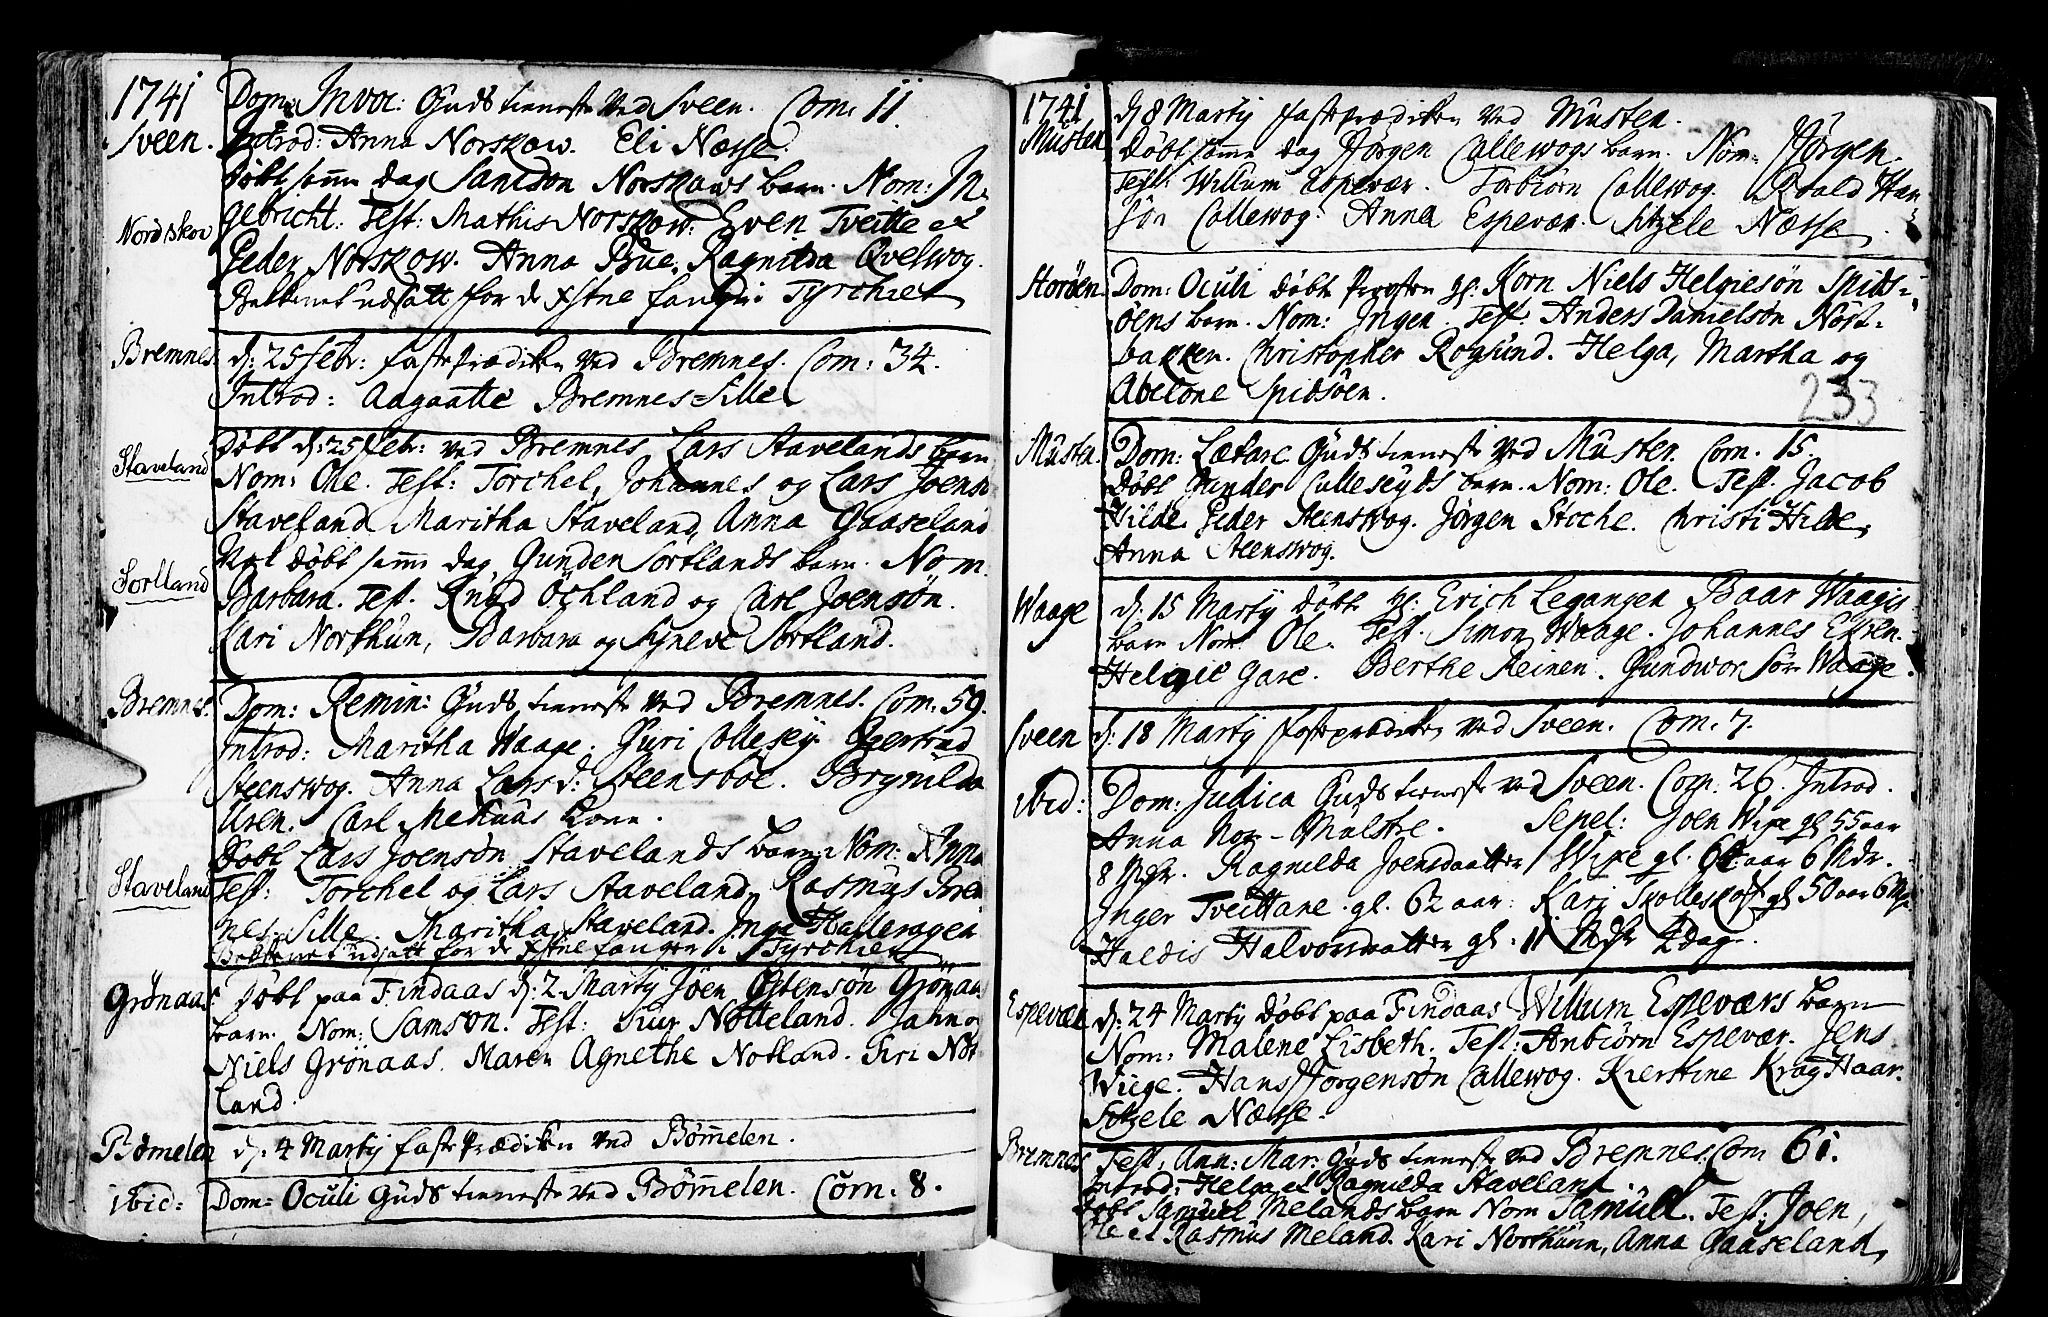 1741
Sveen.
Dom: Invoc: Guds tienneste ved Sveen. Com: 11.
Introd: Anna Norskow. Eli Næsse
Døbt samme dag Samson Norskows barn. Nom: In-
Nordskov
gebricht. Test: Mathis Norskow. Even Tveitte et
Peder Norskow. Anna Bue. Ragnilda Qvelwog.
Bekkenet udsatt for de Xstne fanger i Tyrchiet
Bremnes
d: 25 Febr: faste prædiken ved Bremnes. Com: 34.
Introd: Aagaatte Bremnes-Sille
Døbt d: 25 Febr: ved Bremnes Lars Stavelands barn
Staveland
Nom: Ole. Test: Torchel, Johannes og Lars Joensøn
Staveland Maritha Staveland, Anna Gaaseland
Nok døbt samme dag, Gunden Sortlands barn. Nom.
Sortland
Barbara. Test. Knud Öchland og Carl Joensøn.
Kari Northun, Barbara og Syneve Sortland.
Bremnes.
Dom: Remin: Guds tienneste ved Bremnes. Com: 59.
Introd: Maritha Waage. Guri Collesey. Gertrud
Steenswog. Anna Lars d: Steensboe. Brynilda
Uren. Carl Mehuus kone.
Døbt Lars Joensøn Stavelands barn. Nom: Anna
Staveland
Test: Torchel og Lars Staveland, Rasmus Brem
nes-Sille. Maritha Staveland. Inga Halleragen
Bekkenet udsatt for de Xstne fanger i Tyrchiet
Grønaas:
Døbt paa Findaas d: 2 Martij Joen Østensøn Grønaas
barn. Nom: Samson. Test: Siur Notteland. Janno
Niels Grønaas. Maren Agnethe Notland. Siri Not
land.
Bømelen
d: 4 Martij faste prædiken ved Bømmelen.
ibid:
Dom: Oculi Guds tienneste ved Bømmelen. Com: 8.
1741
Musten
d 8 Martij faste prædiken ved Musten.
Døbt samme dag Jørgen Callewogs barn. Nom: Jørgen.
Test: Willum Espevær. Torbiørn Callewog. Roald Han
søn Callewog: Anna Espevær. Sitzele Næsse
Storøen
Dom: Oculi døbte Presten hr. Korn Niels Helgiesøn Spids-
øens barn. Nom: Ingen. Test. Anders Danielsøn Nøst-
bakken. Christopher Rogsund. Helga, Martha og
Abelone Spidsøen.
233
Musten.
Dom: Lætare Guds tienneste ved Musten. Com. 15.
Døbt Gunder Calleseyds barn. Nom: Ole. Test. Jacob
Hilde. Peder Steenswog. Jørgen Stoche. Christi Hilde,
Anna Steenswog.
Waage
d: 15 Martij døbte hr: Erich Legangen Baar Waagis
barn Nom: Ole. Test. Simon Waage. Johannes Eken.
Helgie Gare. Berthe Reinen. Gundwor Sør Waage.
Sveen
d: 18 Martij faste prædiken ved Sveen. Com. 7.
ibid:
Dom: Judica Guds tienneste ved Sveen. Com: 26. Introd.
Anna Nor-Mølstre. Sepel: Joen Wixe gl 55 aar
8 Mdr. Ragnilda Joensdaatter Wixe gl. 64 aar 6 Mdr.
Inger Tveittane. gl. 62 aar. Kari Skolleskoff gl 50 aar 6 Mdr
Haldis Halvorsdaatter gl. 11 Mdr 4 dage.
Espevær
d: 24 Martij døbt paa Findaas Willum Espeværs barn
Nom: Malene Lisbeth. Test: Anbiørn Espevær. Jens
Wiige. Hans Jorgensøn Callewog. Kierstine Krag Haar.
Sitzele Næsse.
Bremnes
Fest. Ann: Mar: Guds tienneste ved Bremnes. Com 61.
Introd: Helga et Ragnilda Staveland
Døbt Samuel Melands barn Nom Samuel. Test: Joen,
Ole et Rasmus Meland. Kari Northunn, Anna Gaaseland,